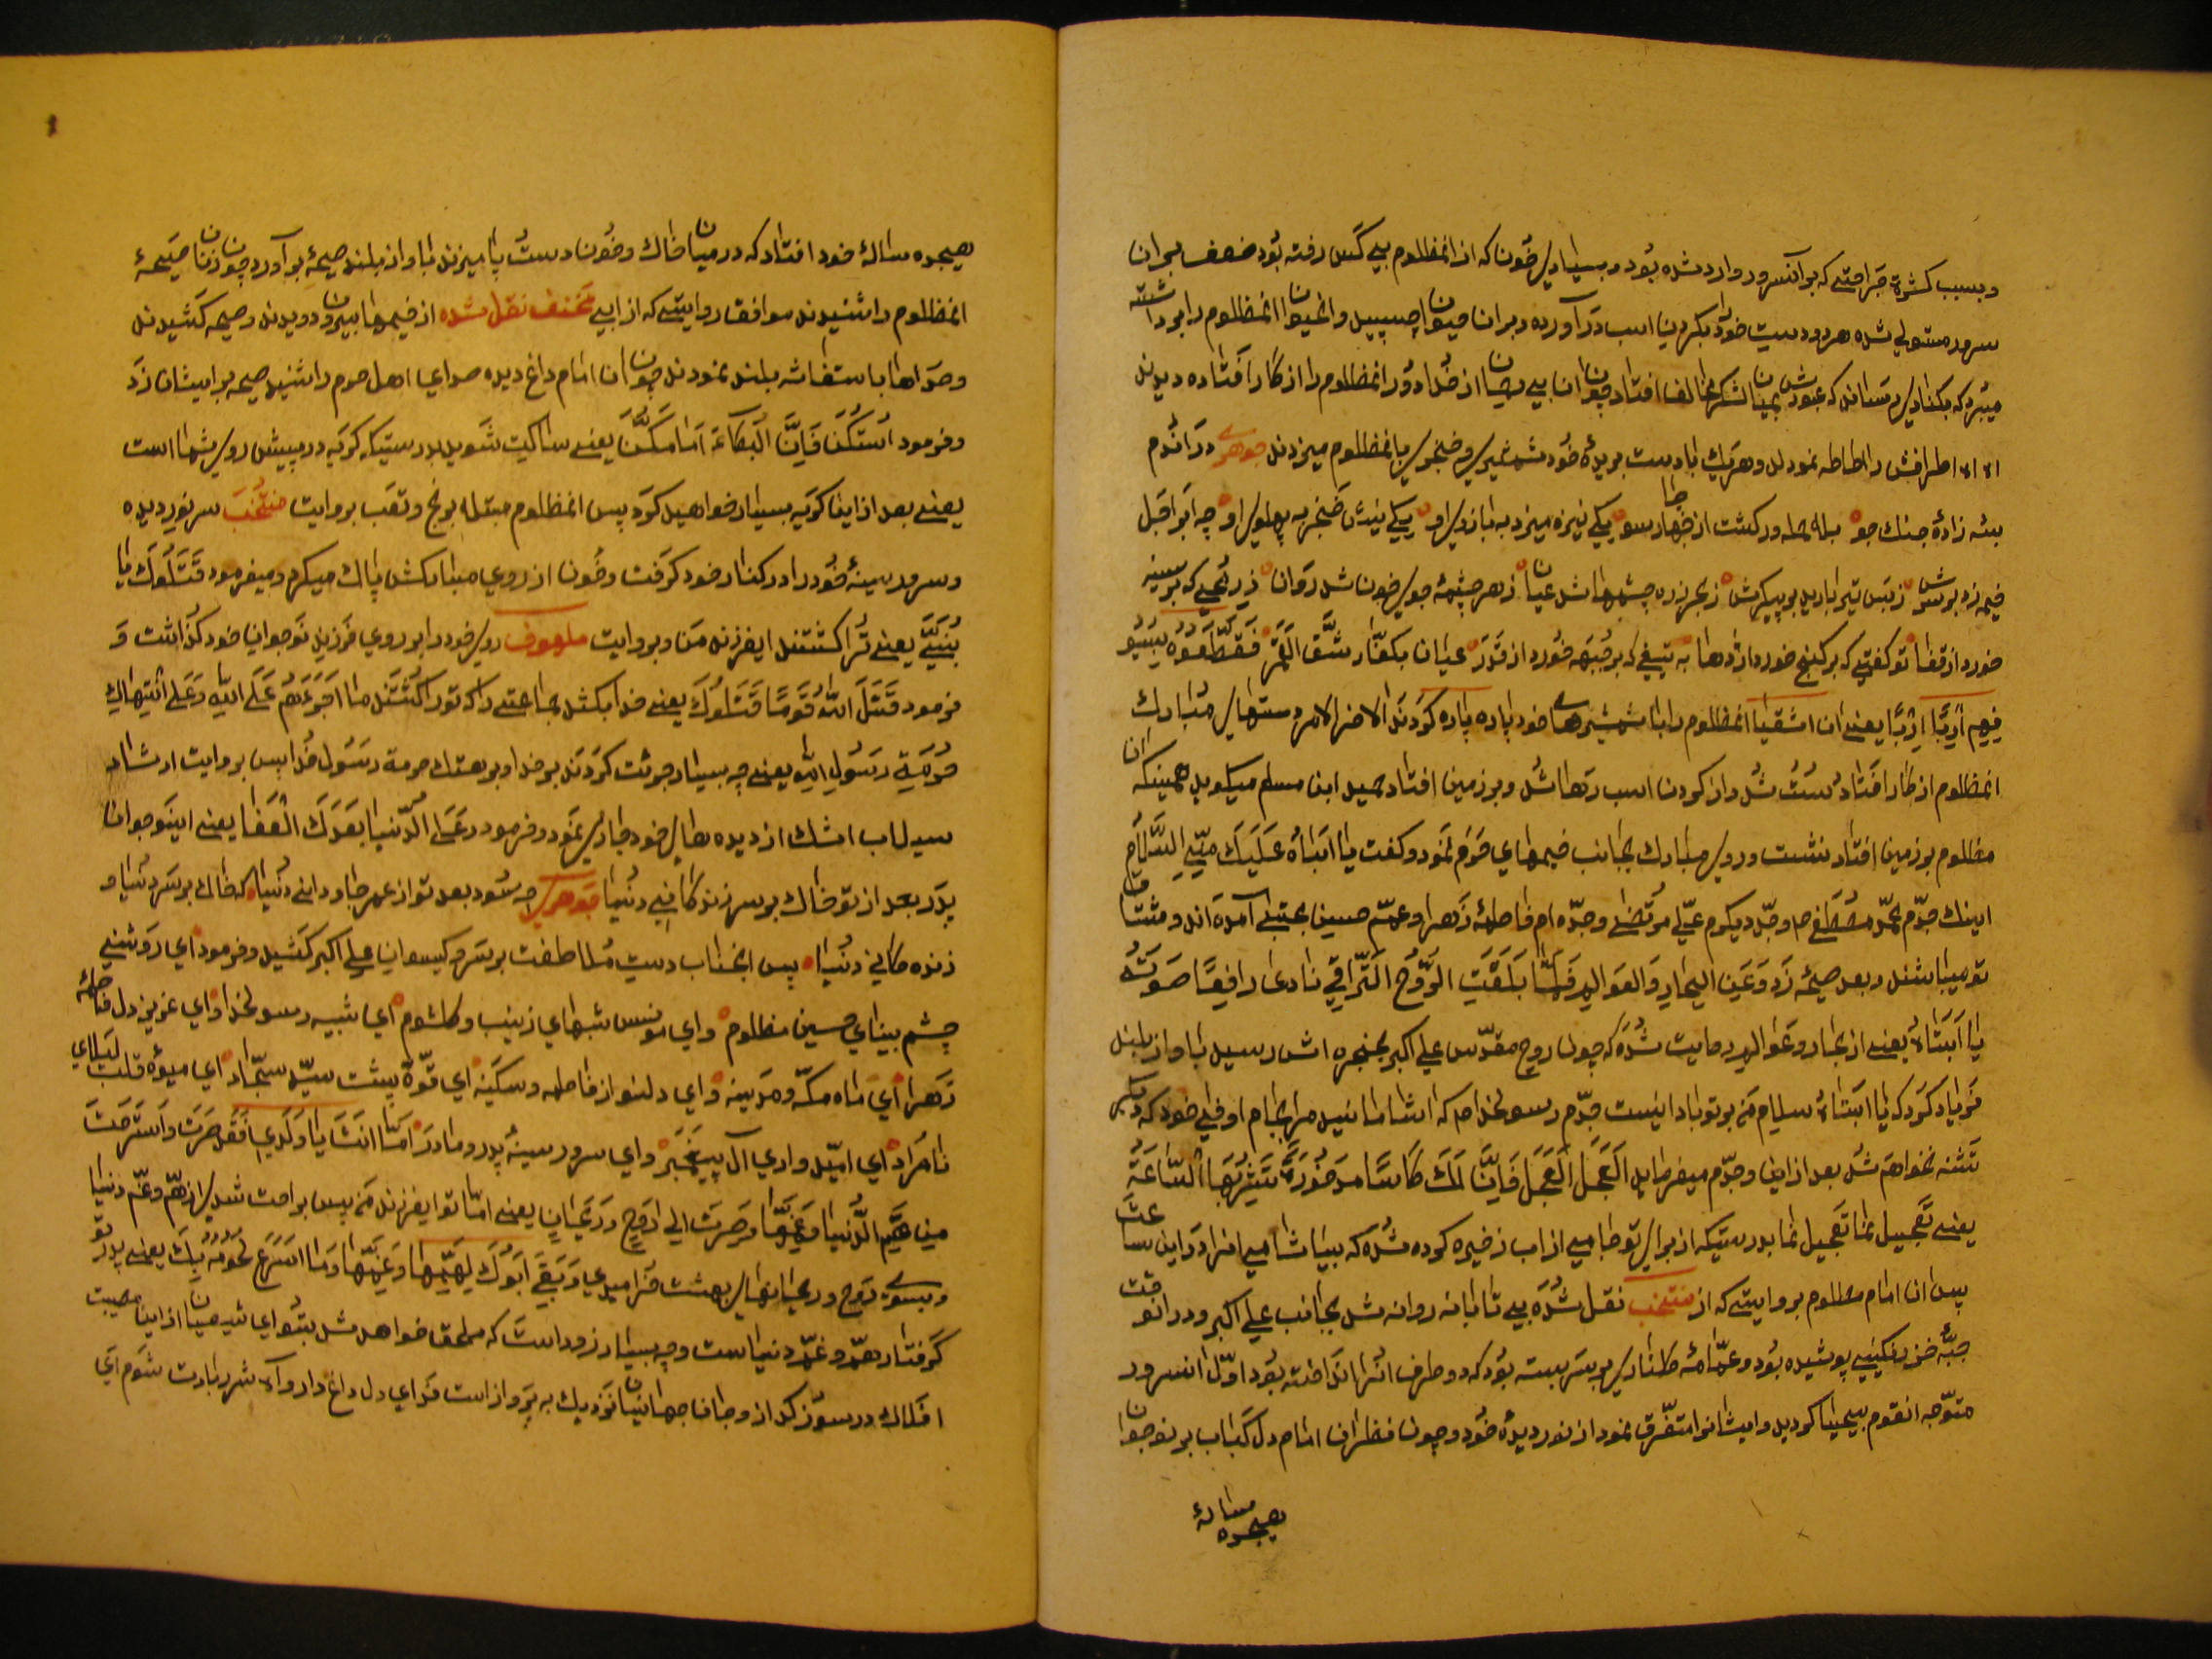 و بسبب کثرة جراحتی که بر آنسرور وارد شده بود و بسیاری خون که از انمظلوم بی کس رفته بود ضعف بر ان
سرور مستولی شده هر دو دست خود بکردن اسب در آورده و بر ان حیوان چسپید و انحیوان انمظلوم را برداشته
میبرد که بکناری رساند که عبورش بمیان لشکر مخالف افتاد چون ان بی حیایان از خدا دور انمظلوم را از کار افتاده دیدند
الا اطرافش را احاطه نمودند و هر یک با دست بریدهٔ خود شمشیر و خنجر بانمظلوم میزدند جوهری در اندم
بشه زادهٔ جنک جو بلا حمله ور کشت از چهار سو یکی نیزه میزد به بازوی او یکی میزد خنجر به پهلوی او چه ابر اجل
خیمه زد بر سرش ز بس تیر بارید بر پیکرش ز هر زره چشمها شد عیان ز هر چشمهٔ جوی خون شد روان ز تیری که بر سینه
خورد از قفا تو کفتی که بر کنج خورد اژدها به تیغی که بر جبهه خورد از قدر عیان بکفتار شق القمر فقطعوه بسیو
فهم اربا اربا یعنی ان اشقیا انمظلوم را با شمشیرهای خود پاره پاره کردند الاخر الامر دستهای مبارک
انمظلوم از کار افتاد سست شد و از کردن اسب رها شد و بر زمین افتاد حمید ابن مسلم میکوید همینکه ان
مظلوم بر زمین افتاد نشست و روی مبارک بجانب خیمهای حرم نمود و کفت یا ابتاه علیک منی السلام
اینک جدم محمد مصطفی ص و جد دیکرم علی مرتضی و جده ام فاطمهٔ زهرا و عمم حسن مجتبی آمده اند و مشتاق
تو میباشند و بعد صیحهٔ زد و عن البحار و العوالم فلما بلغت الروح التراقی نادی رافعا صوته
یا ابتاه یعنی از بحار و عوالم روایت شده که چون روح مقدس علی اکبر بحنجره اش رسید باواز بلند
فریاد کرد که یا ابتاه سلام من بر تو باد اینست جدم رسولخدا ص که اشامانید مرا بجام اوفی خود که دیکر
تشنه نخواهم شد بعد از این و جدم میفرماید العجل العجل فان لک کاسا مذخورة تشربها الساعة
یعنی تعجیل نما تعجیل نما بدرستیکه از برای تو جامی از اب ذخیره کرده شده که بیاشامی انرا در این ساعت
پس ان امام مظلوم بروایتی که از منتخب نقل شده بی تابانه روانه شد بجانب علی اکبر و در انوقت
جبهٔ خز رنکینی پوشیده بود و عمامهٔ طناری بر سر بسته بود که دو طرف انرا انداخته بود اول انسرور
متوجه انقوم بیحیا کردید و ایشانرا متفرق نمود از نور دیدهٔ خود و چون نظر ان امام دل کباب بر نوجوان
هیجده سالهٔ
هیجده سالهٔ خود افتاد که در میان خاک و خون دست پا میزند باواز بلند صیحهٔ برآورد چون زنان صیحهٔ
انمظلوم را شنیدند موافق روایتی که از ابی مخنف نقل شده از خیمها بیرون دویدند و صیحه کشیدند
و صداها باستغاثه بلند نمودند چون ان امام داغ دیده صدای اهل حرم را شنید صیحه بر ایشان زد
و فرمود اسکتن فان البکاء امامکن یعنی ساکت شوید بدرستیکه کریه در پیش روی شما است
یعنی بعد از این کریه بسیار خواهید کرد پس انمظلوم مبتلا برنج و تعب بروایت منتخب سر نور دیده
و سرور سینهٔ خود را در کنار خود کرفت و خون از روی مبارکش پاک میکرد و میفرمود قتلوک یا
بنی یعنی ترا کشتند ایفرزند من و بروایت ملهوف روی خود را بر روی فرزند نوجوان خود کذاشت و
فرمود قتل الله قوما قتلوک یعنی خدا بکشد جماعتی را که تو را کشتند ما اجرءهم علی الله و علی انتهاک
حرمة رسول الله یعنی چه بسیار جرئت کردند بر خدا و بر هتک حرمة رسول خدا پس بروایت ارشاد
سیلاب اشک از دیده های خود جاری نمود و فرمود و علی الدنیا بعدک العفا یعنی اینوجوان
پدر بعد از تو خاک بر سر زندکانی دنیا جوهری چه سود بعد تو از عمر جاودانی دنیا که خاک بر سر دنیا و
زنده کانی دنیا پس انجناب دست ملاطفت بر سر و کیسوان علی اکبر کشید و فرمود ای روشنی
چشم بینای حسین مظلوم و ای مونس شبهای زینب و کلثوم ای شبیه رسولخدا و ای عزیز دل فاطمهٔ
زهرا ای ماه مکه و مدینه و ای دلنواز فاطمه و سکینه ای قوة پشت سید سجاد ای میوهٔ قلب لیلای
نامراد ای امید وادی آل پیغمبر و ای سرور سینهٔ پدر و مادر اما انت یا ولدی فقد صرت و استرحت
من هم الدنیا و غمها و صرت الی روح و ریحان یعنی اما تو ایفرزند من پس براحت شدی از هم و غم دنیا
و بسوی روح و ریحانهای بهشت خرامیدی و بقی ابوک لهمها و غمها و ما اسرع لحوقه بک یعنی پدر تو
کرفتار هم و غم دنیاست و چه بسیار زود است که ملحق خواهد شد بتو ای شیعیان از این مصیبت
افلاک در سوز کداز و جان جهانیان نزدیک به پرواز است فدای دل داغ دار و آه شرربارت شوم ای